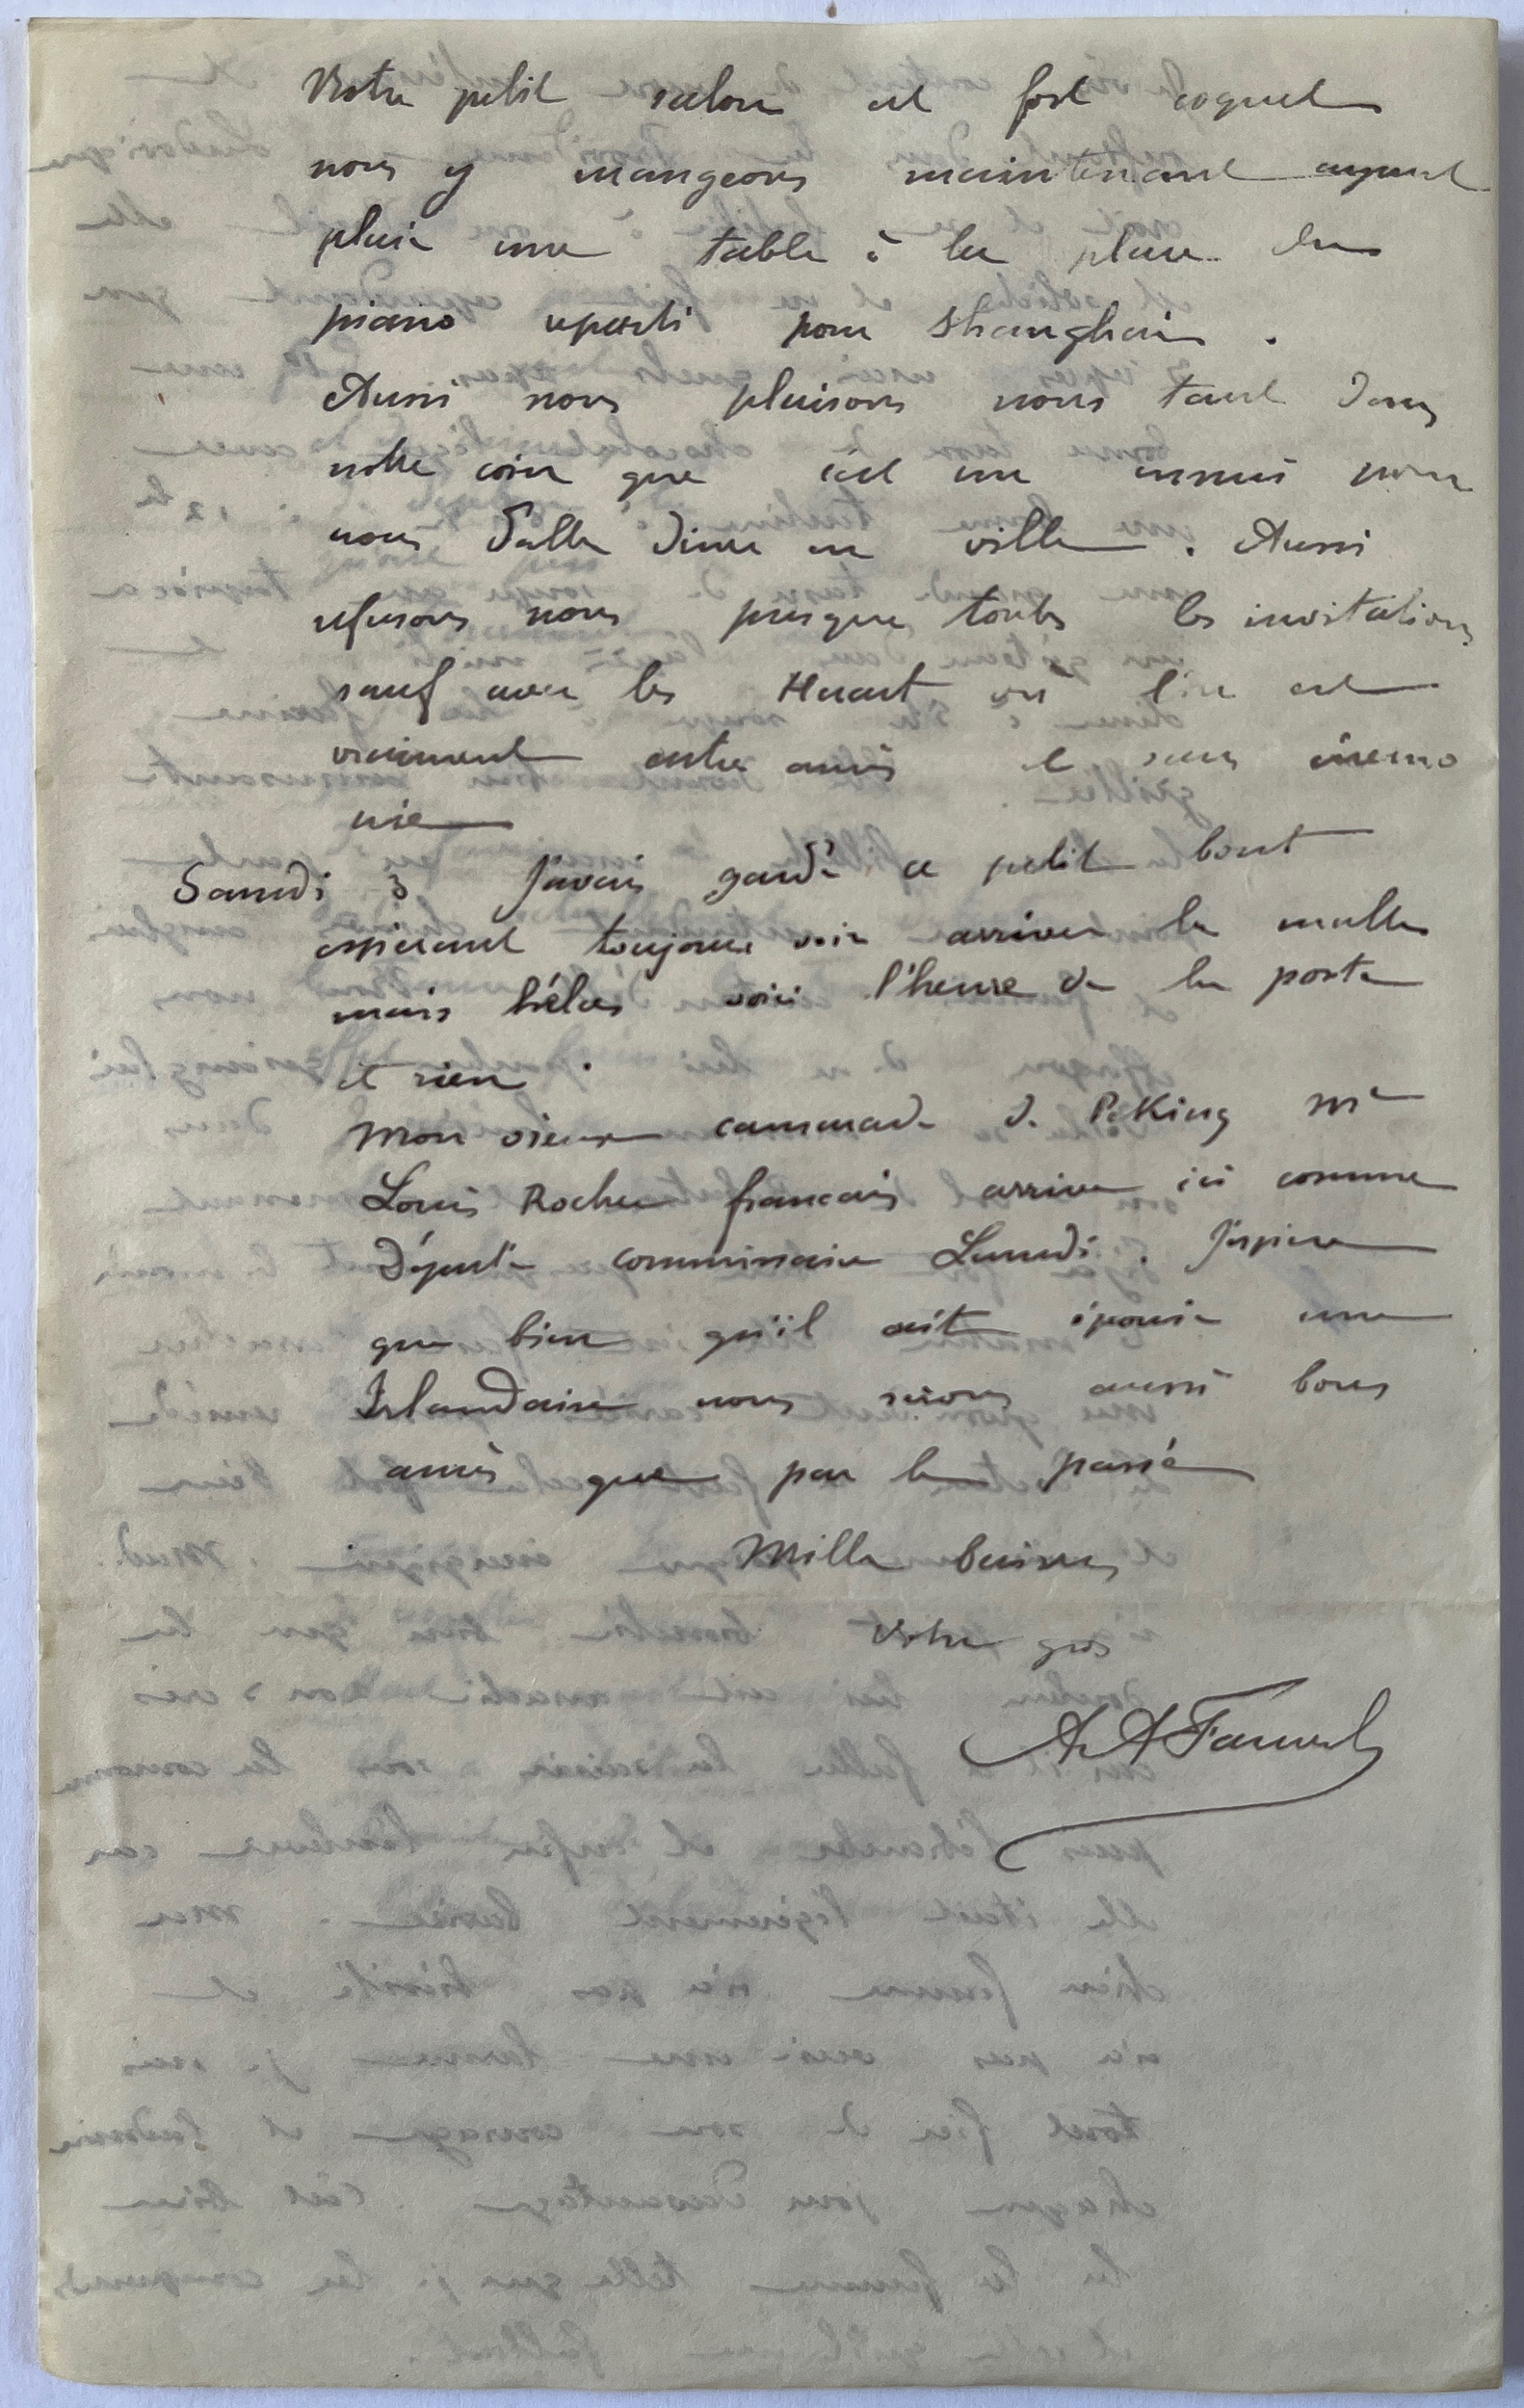 Notre petit salon est fort coquet
nous y mangeons maintenant ayant
placé une table à la place du
piano reparti pour Shanghai.
Aussi nous plaisons nous tant dans
notre coin que c'est un ennui pour
nous d'aller diner en ville. Aussi
refusons nous presque toutes les invitations
sauf avec les Huart où l'on est
vraiment entre amis et sans cérémo
nie
Samedi 3 J'avais gardé ce petit bout
espérant toujours voir arriver la malle
mais hélas voici l'heure de la poste
et rien.
Mon vieux camarade de Peking Mr
Louis Rocher français arrive ici comme
Député commissaire Lundi. J'espère
que bien qu'il ait épousé une
Irlandaise nous serons aussi bons
amis que par le passé
Mille baisers
Votre gros
A A Fauvel